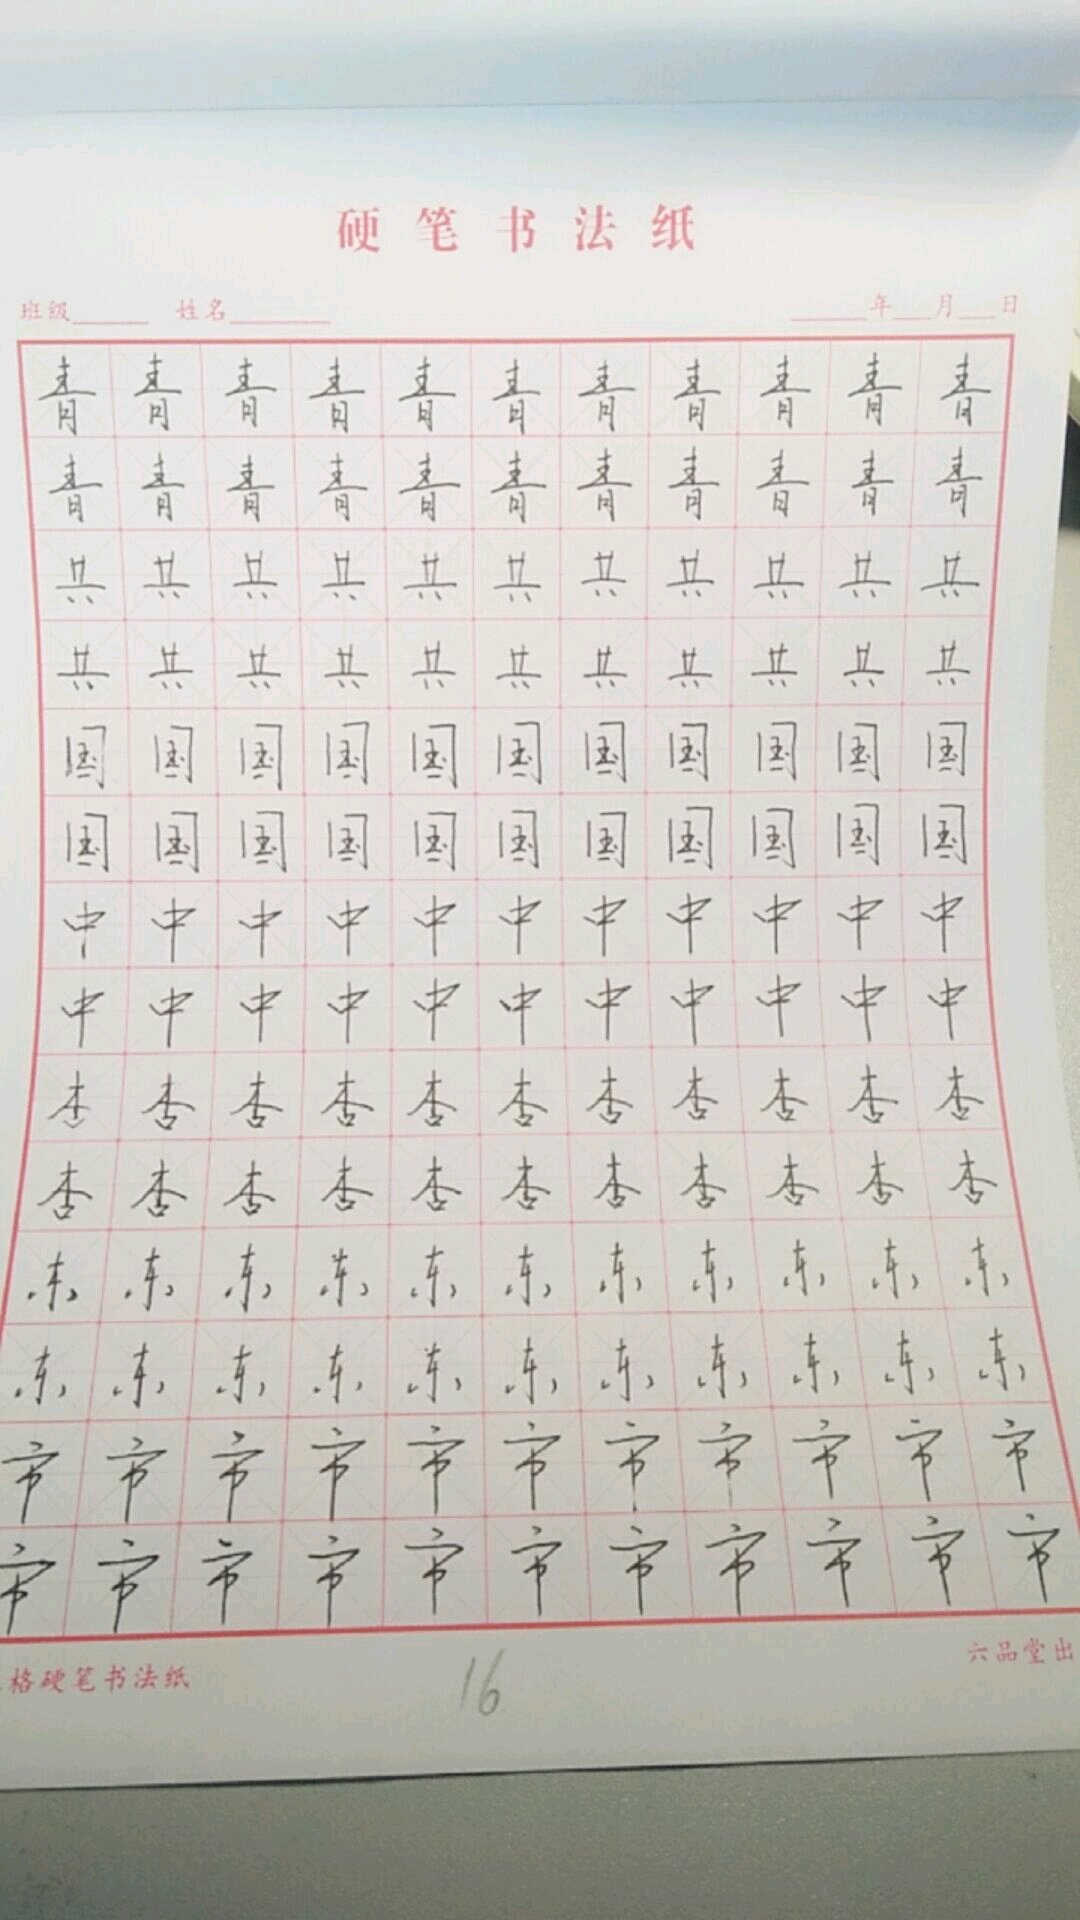 硬笔书法纸
班级 姓名 年 月 日
青青青青青青青青青青青
青青青青青青青青青青青
共共共共共共共共共共共
共共共共共共共共共共共
国国国国国国国国国国国
国国国国国国国国国国国
中中中中中中中中中中中
中中中中中中中中中中中
杏杏杏杏杏杏杏杏杏杏杏
杏杏杏杏杏杏杏杏杏杏杏
东东东东东东东东东东东
东东东东东东东东东东东
市市市市市市市市市市市
市市市市市市市市市市市
格硬笔书法纸 16 六品堂出